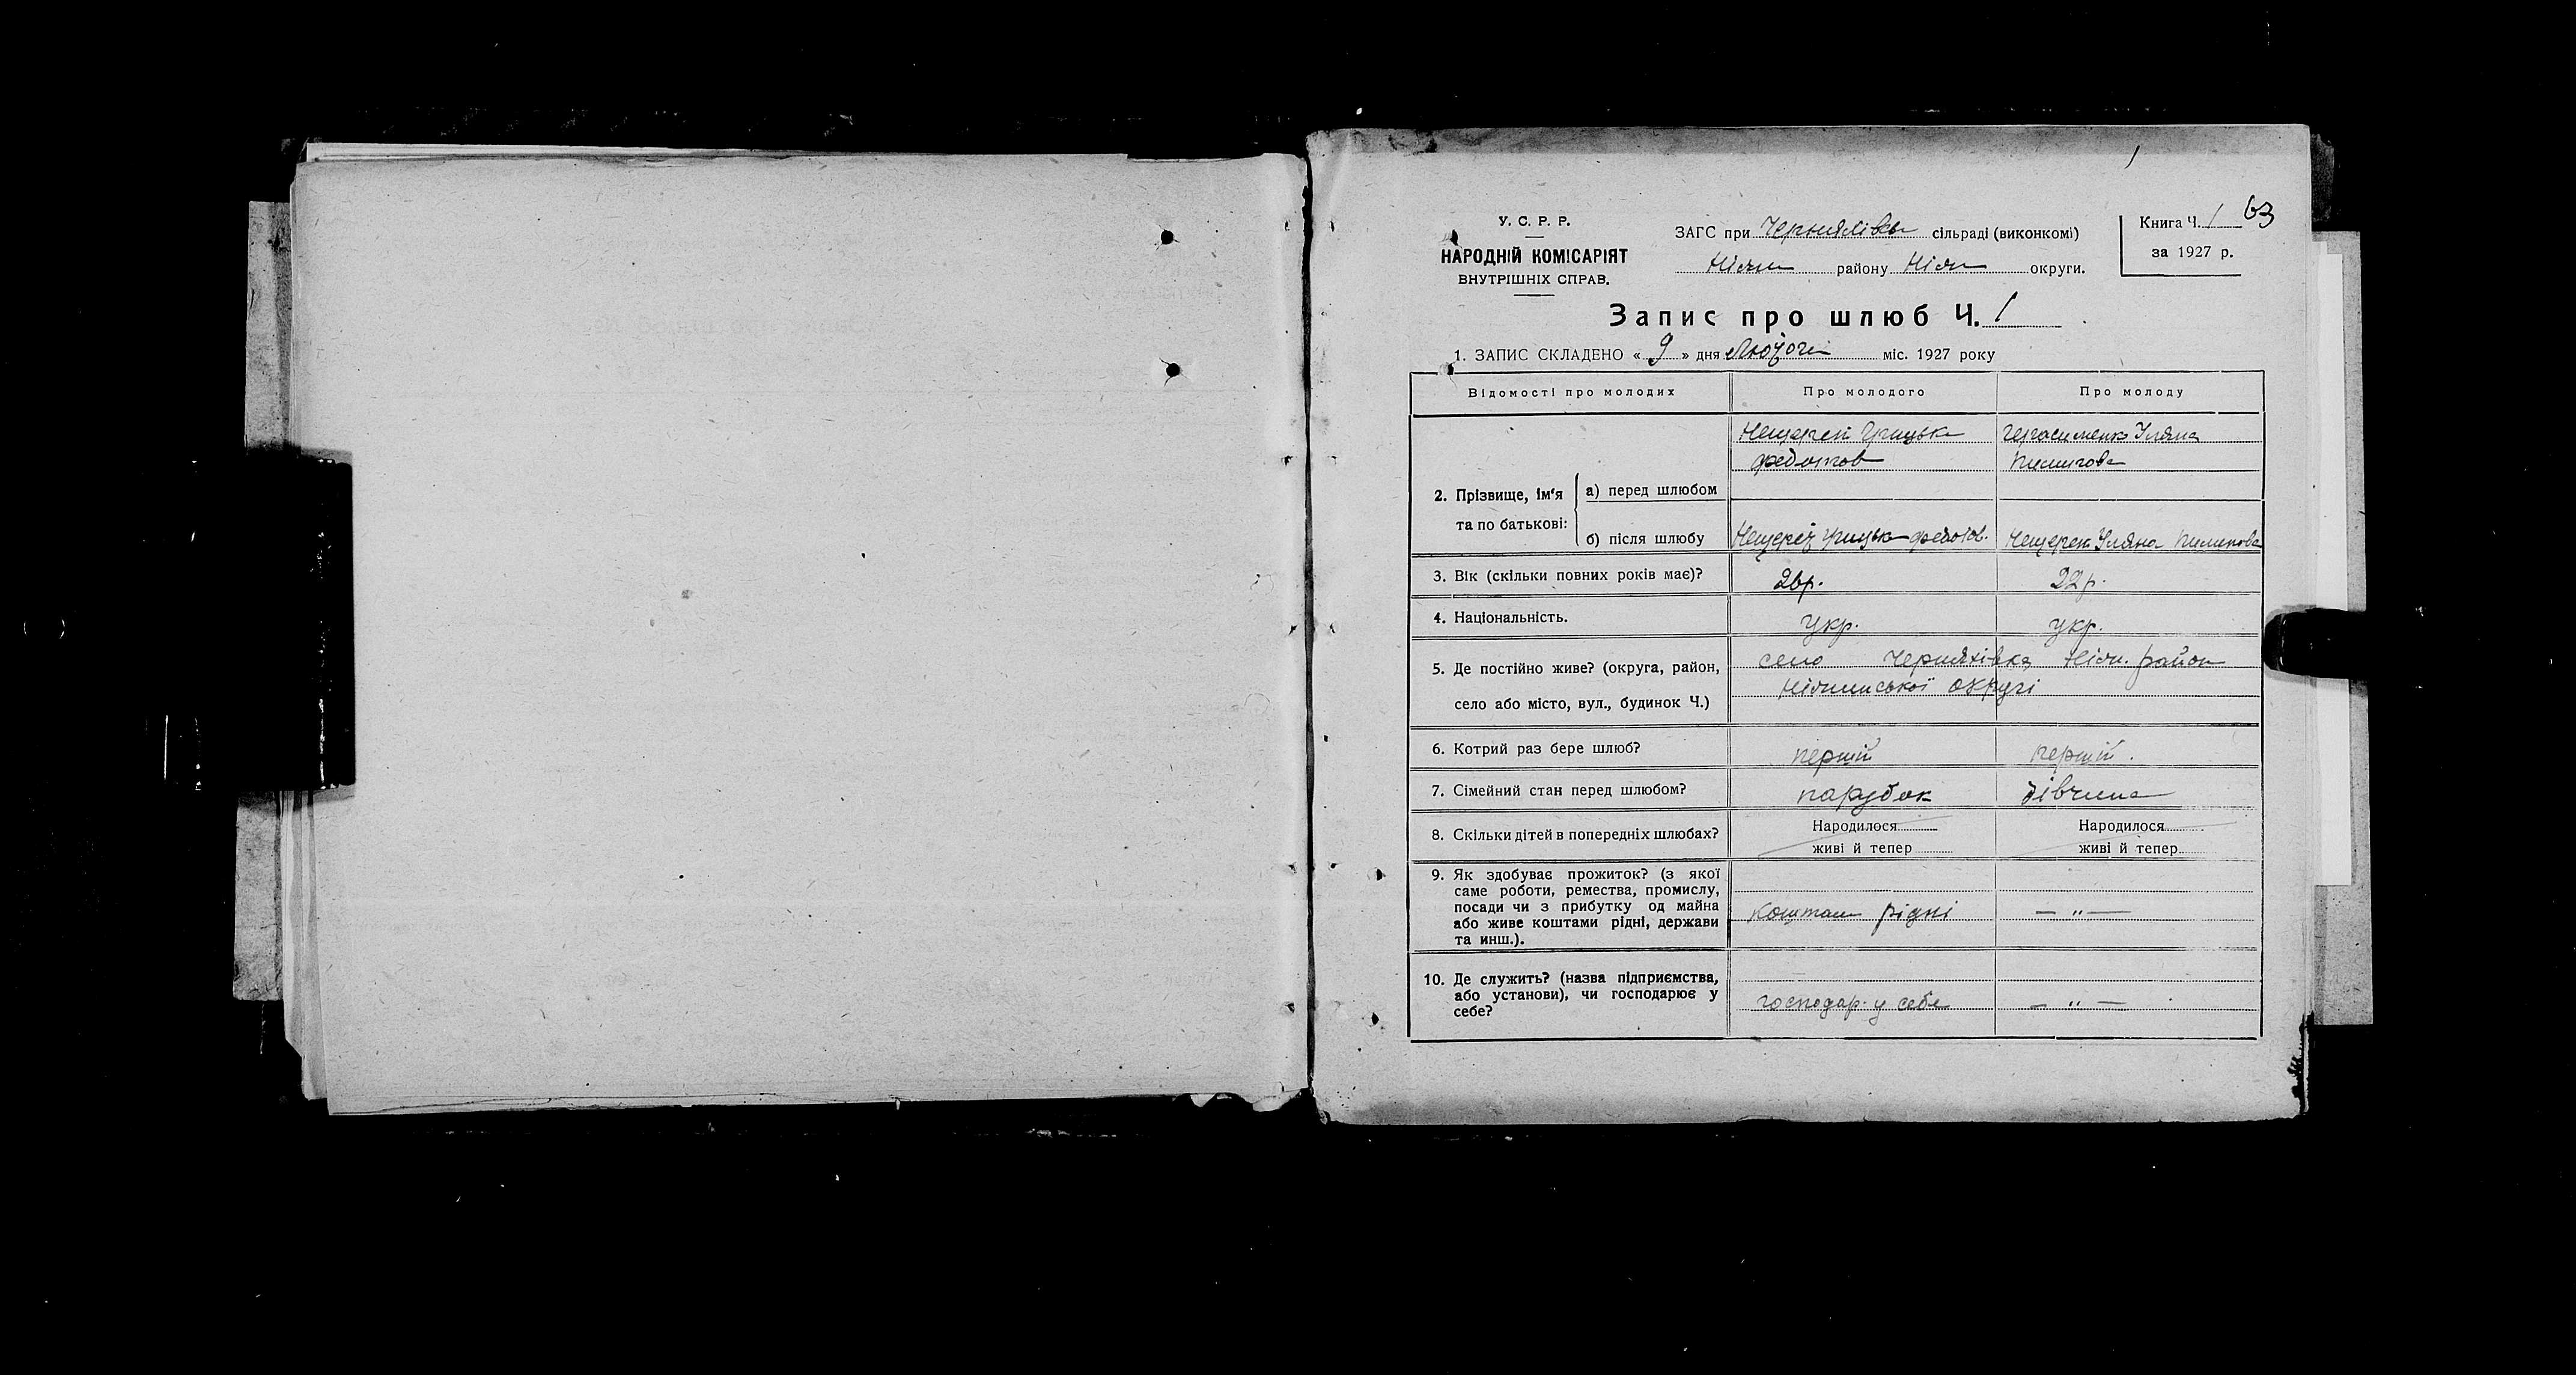 63
У. С. Р. Р.
НАРОДНІЙ КОМІСАРІЯТ
ВНУТРІШНІХ СПРАВ.
ЗАГС при Черняхівс сільраді (виконкомі)
Ніжин району Ніж округи.
Книга Ч. 1
за 1927 р.
Запис про шлюб Ч. 1
1. ЗАПИС СКЛАДЕНО « 9 » дня Лютого міс. 1927 року
Відомості про молодих Про молодого Про молоду
2. Прізвище, ім'я та по батькові:
а) перед шлюбом
Нещерет Грицько
Федотов
Герасименко Уляна
Пименова
б) після шлюбу
Нещерет Грицько Федотов. Нещерет Уляна Пименова
3. Вік (скільки повних років має)? 26р. 22р.
4. Національність. Укр. укр.
5. Де постійно живе? (округа, район,
село або місто, вул., будинок Ч.)
село Черняхівка Ніж. район
Ніжинської округі
6. Котрий раз бере шлюб? перший перший.
7. Сімейний стан перед шлюбом? парубок дівчина
8. Скільки дітей в попередніх шлюбах? Народилося Народилося
живі й тепер живі й тепер
9. Як здобуває прожиток? (з якої
саме роботи, ремества, промислу,
посади чи з прибутку од майна
або живе коштами рідні, держави
та инш.).
коштам рідні — „ —
10. Де служить? (назва підприємства,
або установи), чи господарює у
себе?
господар. у себе — „ —